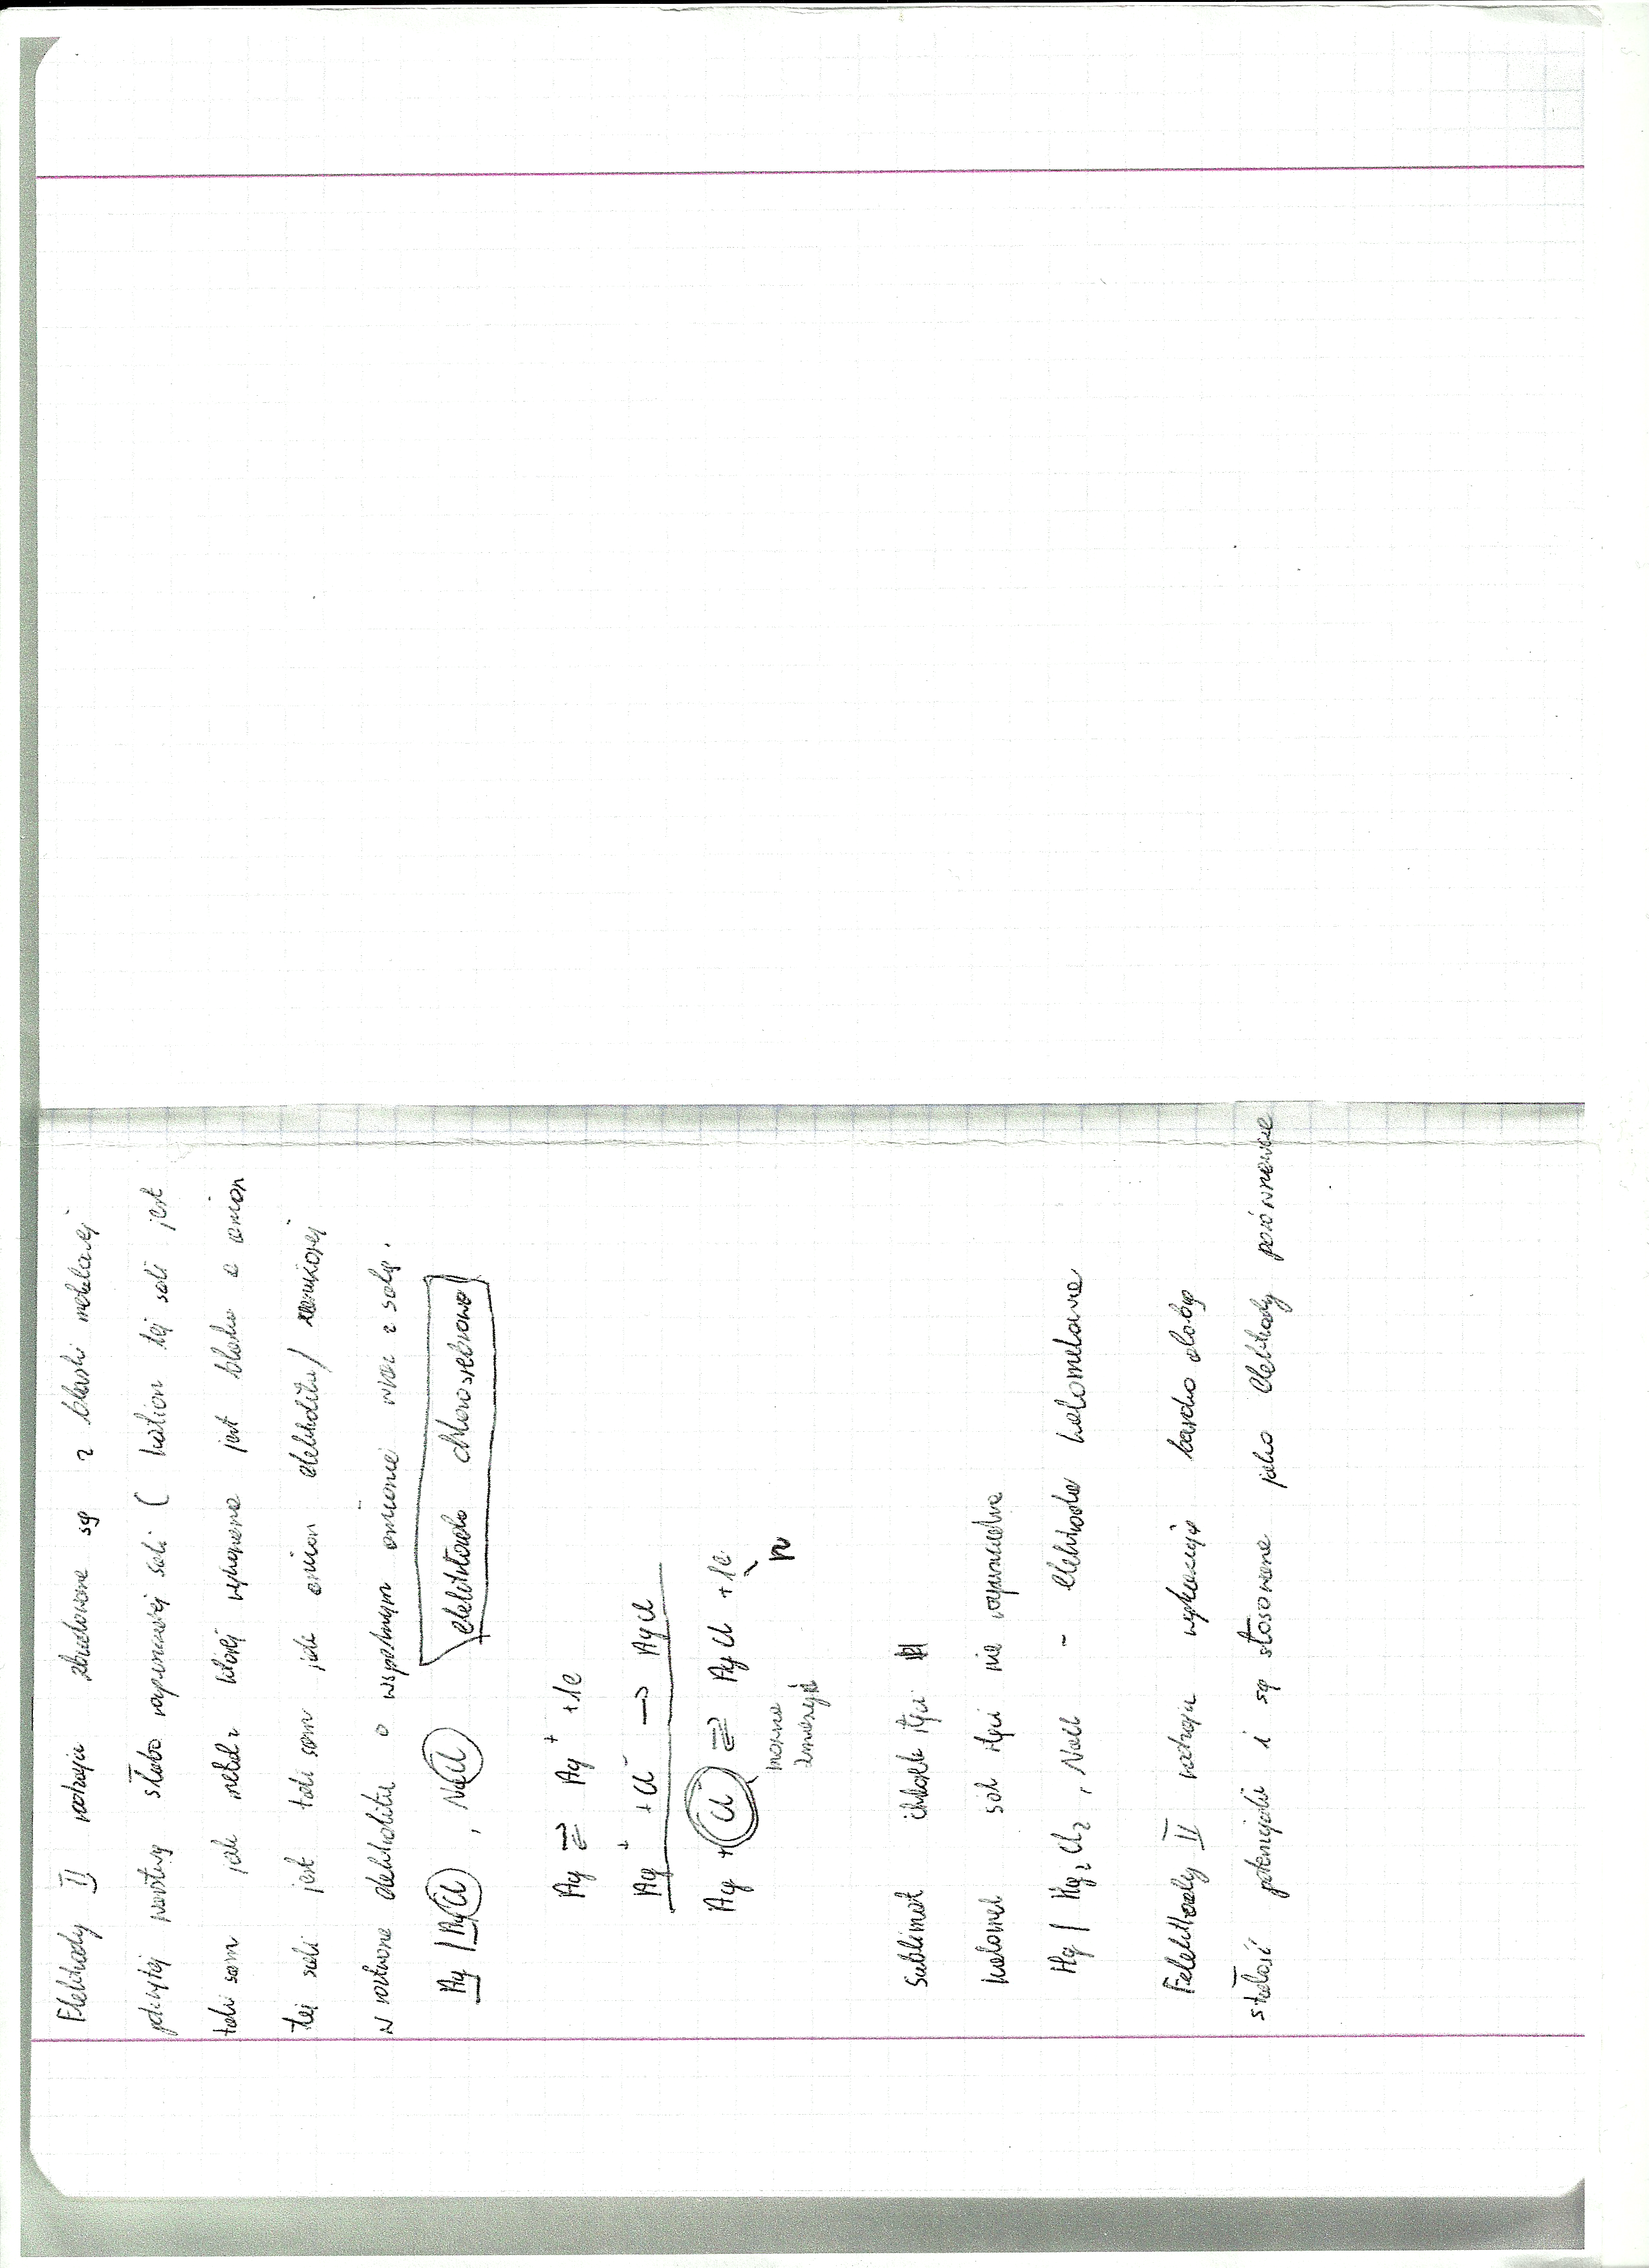 Elektrody II rodzaju zbudowane są z blaszki metalowej
pokrytej warstwą słabo rozpuszczalnej soli ( kation tej soli jest
taki sam jak metal z której wykonana jest blaszka a anion
tej soli jest taki sam jak anion elektrolitu)
w roztworze elektrolitu o wspólnym anionie wraz z solą.
Ag | AgCl , NaCl elektroda chlorosrebrowa
Ag ⇌ Ag⁺ + 1e
Ag⁺ + Cl⁻ → AgCl
Ag + Cl⁻ ⇌ AgCl + 1e
można
zmierzyć
n
Sublimat chlorek rtęci II
kalomel sól rtęci nie
Hg | Hg₂Cl₂ , NaCl - elektroda kalomelowa
Elektrody II rodzaju wykazują bardzo dobrą
stałość potencjału i są stosowane jako elektrody porównawcze